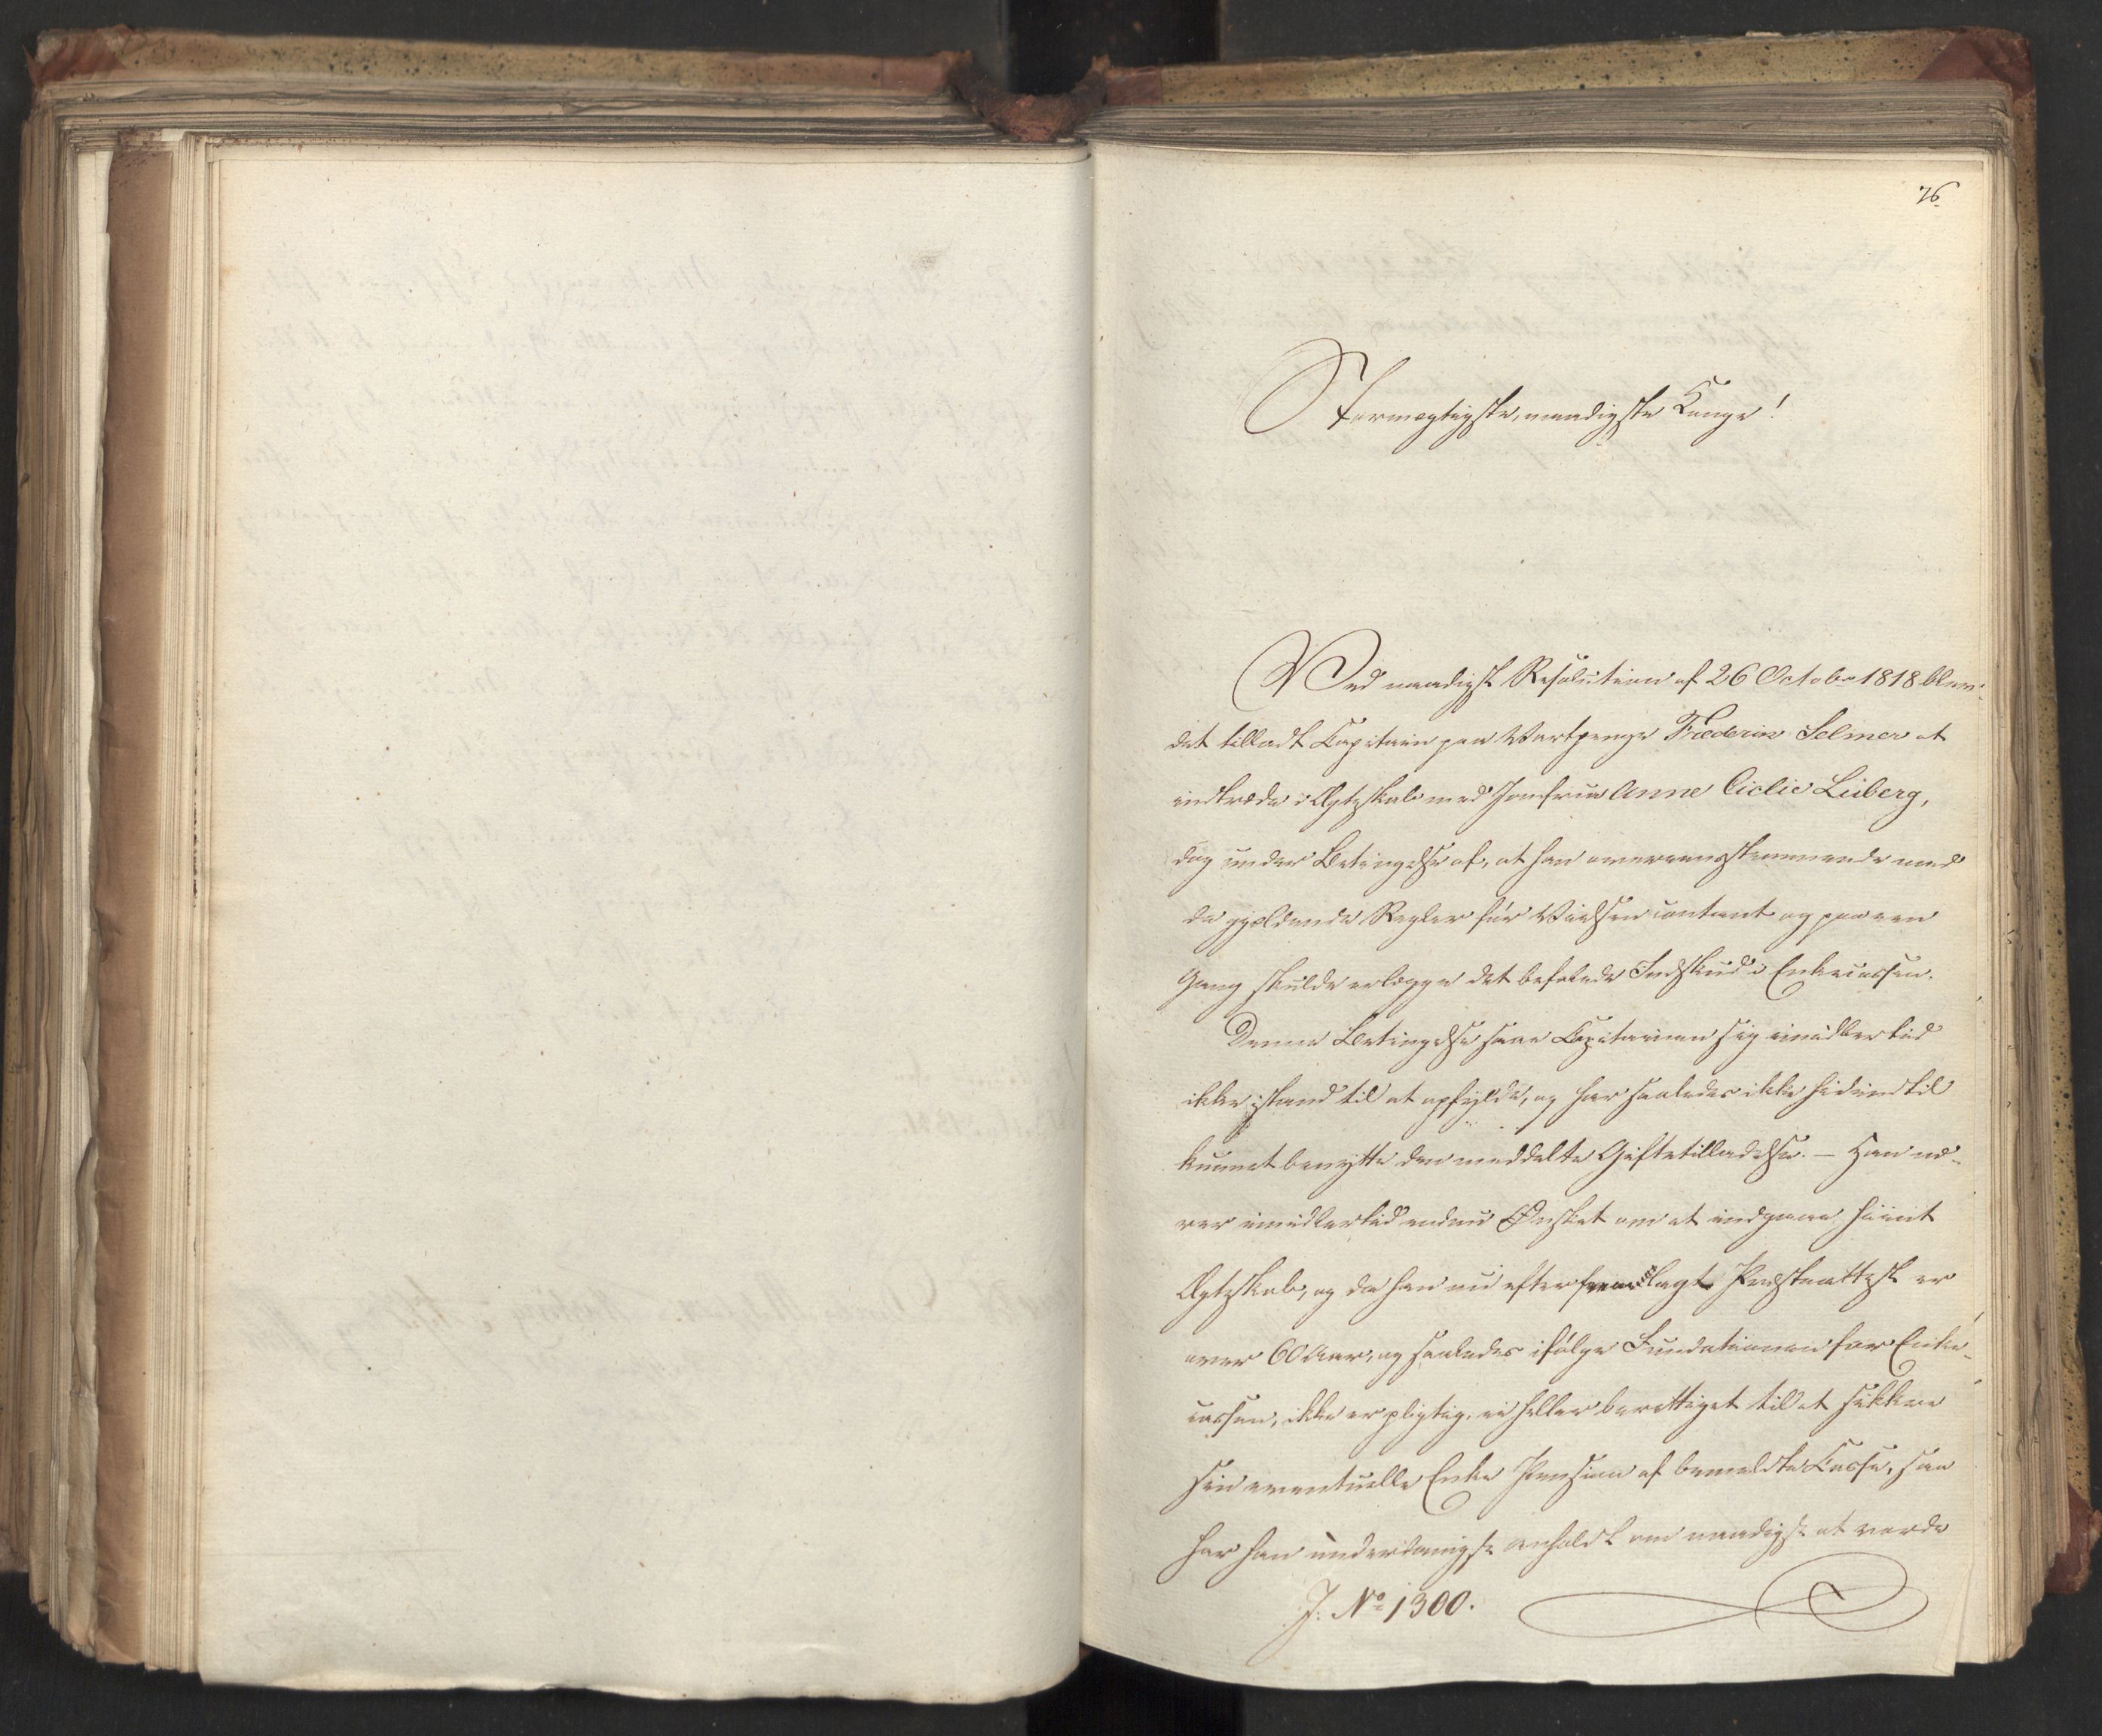 76.
Stormægtigste, naadigste Konge!
Ved naadigst Resolution af 26 Octobr 1818 blev
det tilladt Capitain paa Vartpenge Frederic Selmer at
indtræde i Ægteskab med Jomfrue Anne Cicilie Liiberg,
dog under Betingelse af, at han overeensstemmende med
de gjældende Regler før Vielsen contant og paa een
Gang skulde erlægge det befalede Indskud i Enkecassen.
Denne Betingelse saae Capitainen sig imidlertid
ikke istand til at opfylde, og har saaledes ikke hidindtil
kunnet benytte den meddelte Giftetilladelse. — Han næ-
rer imidlertid endnu Ønsket om at indgaae hiint
Ægteskab, og da han nu efter fremlagt Præsteattest er
over 60 Aar, og saaledes ifølge Fundationen for Enke-
cassen, ikke er pligtig, ei heller berettiget til at sikkre
sin eventuelle Enke Pension af bemeldte Casse, saa
har han underdanigst anholdt om naadigst at vorde
J. No 1300.